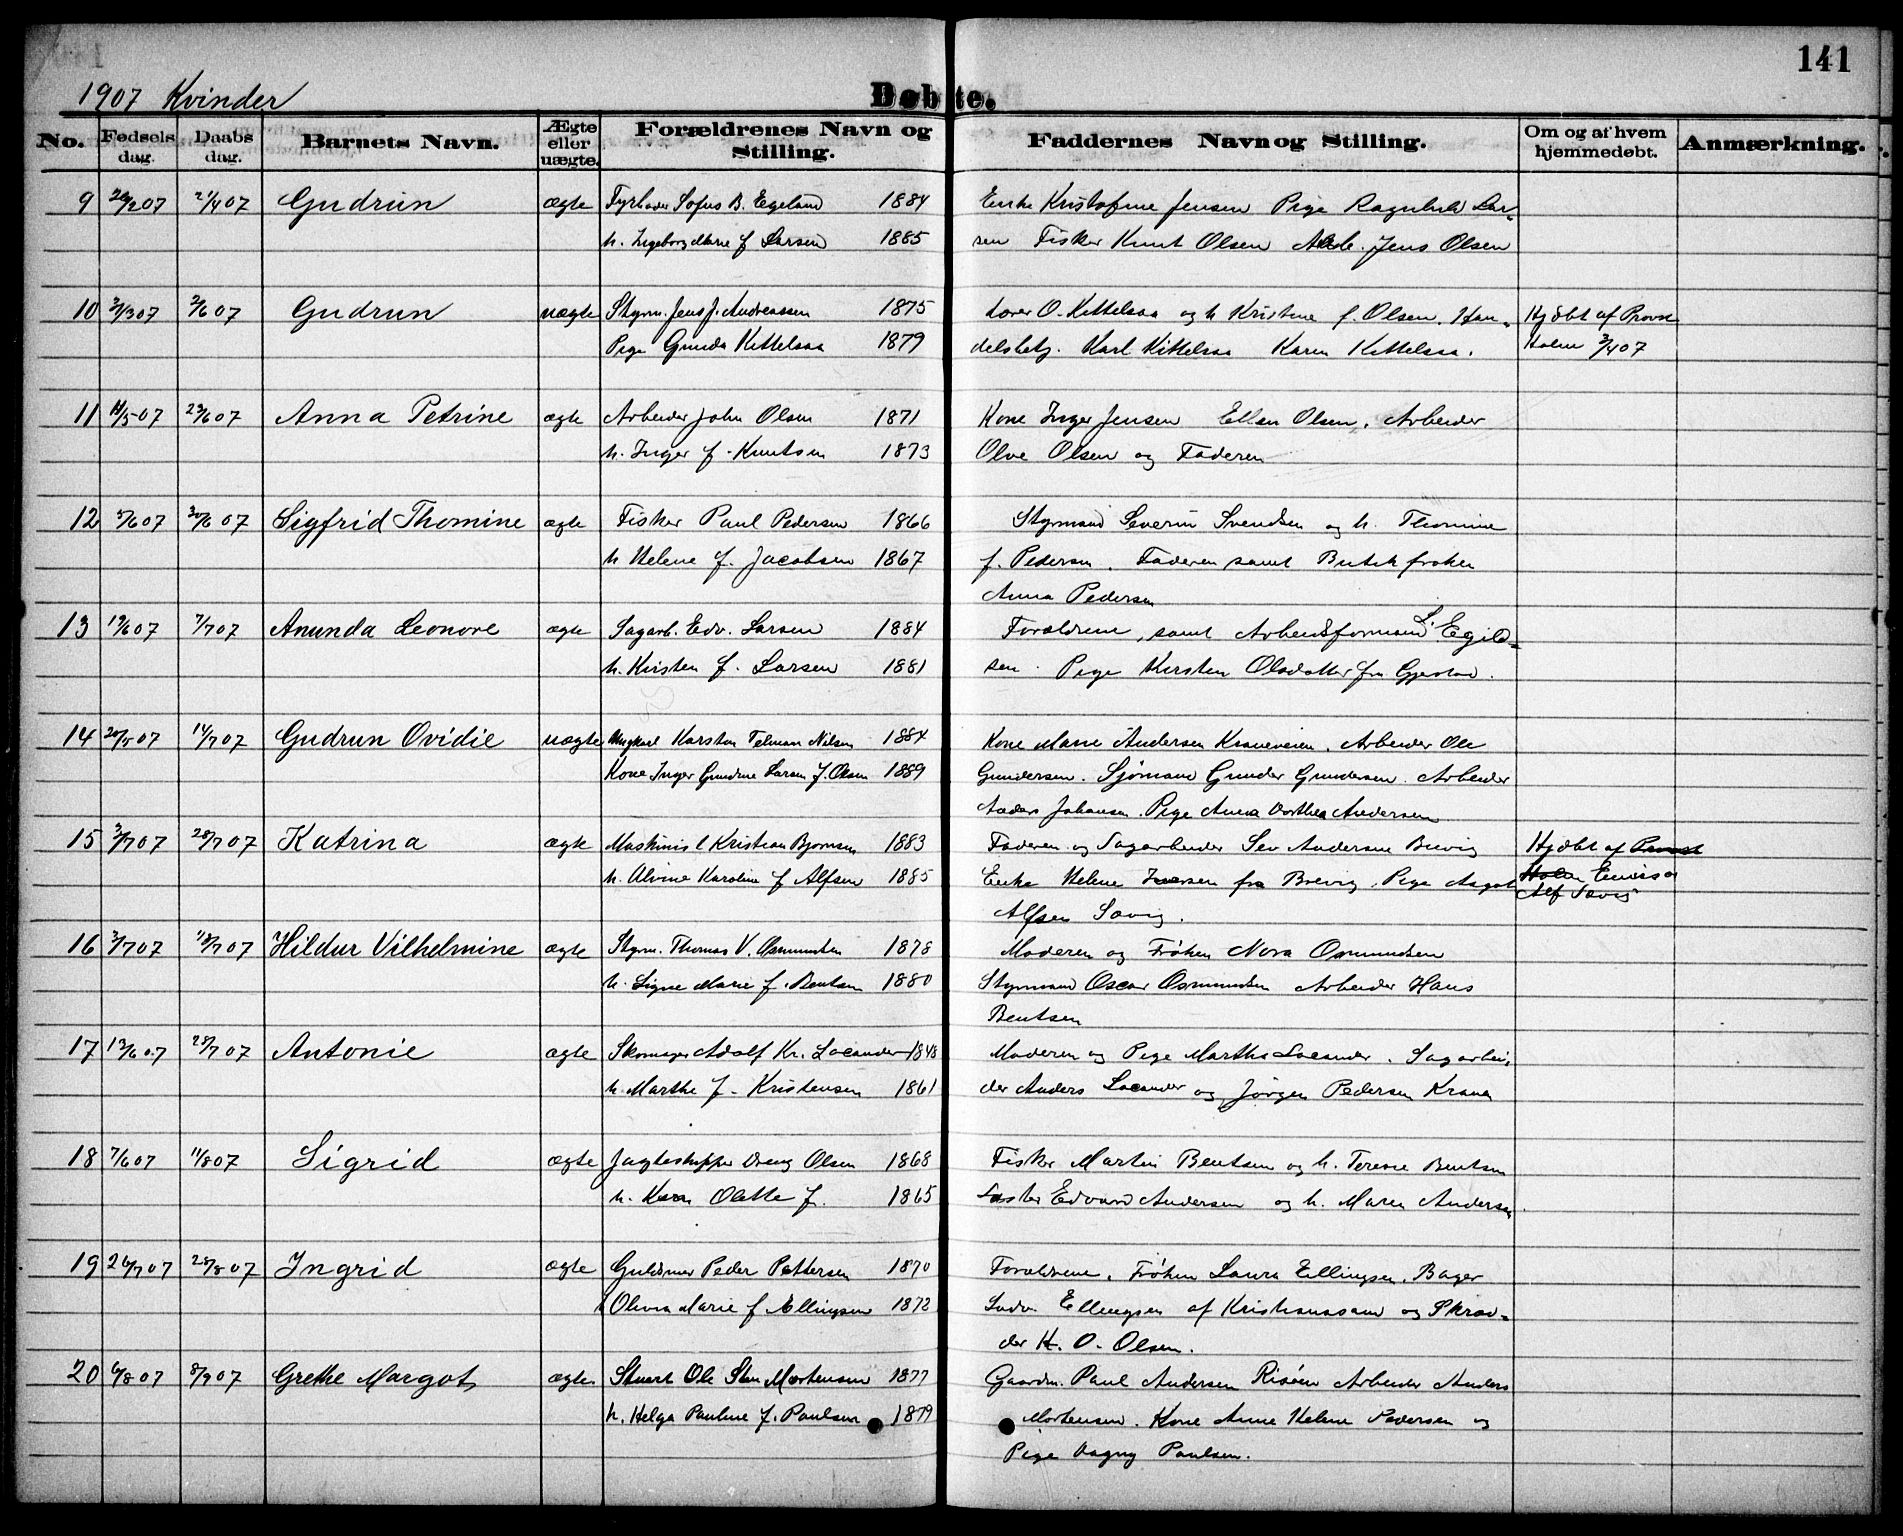 141
1907 Kvinder
Døbte.
No. Fødselsdag. Daabsdag. Barnets Navn. Ægte eller uægte. Forældrenes Navn og Stilling. Faddernes Navn og Stilling. Om og af hvem hjemmedøbt. Anmærkning.
9 26/2 07 21/4 07 Gudrun ægte Fyrbøder Sofus B. Egeland 1884 Enke Kristofine Jensen Pige Ragnhild Lar-
h. Ingeborg Marie f Larsen 1885 sen Fisker Knut Olsen Arb. Jens Olsen
10 2/3 07 2/6 07 Gudrun uægte Styrm. Jens J. Andreassen 1875 O. Kittelsaa og h Kristine f. Olsen. Han- Hjdbt af Provst
Pige Gunda Kittelsaa 1879 delsbetj. Karl Kittelsaa Karen Kittelsaa. Holm 3/4 07
11 11/5 07 23/6 07 Anna Petrine ægte Arbeider John Olsen 1871 Kone Inger Jensen Ellen Olsen. Arbeider
h. Inger f. Knutsen 1873 Olve Olsen og Faderen
12 5/6 07 30/6 07 Sigfrid Thomine ægte Fisker Paul Pedersen 1866 Styrmand Severin Svendsen og h. Thomine
h Helene f. Jacobsen 1867 f. Pedersen. Faderen samt Butikfrøken
Anna Pedersen
13 19/6 07 7/7 07 Anunda Leonore ægte Sagarb. Edv. Larsen 1884 Forældrene, samt Arbeidsformand L. Egild-
h. Kirsten f. Larsen 1881 sen. Pige Kirsten Olsdatter fra Gjerstad.
14 20/5 07 14/7 07 Gudrun Ovidie uægte Ungkarl Karsten Telman Nilsen 1884 Kone Marie Andersen Kraneveien. Arbeider Ole
Kone Inger Gundine Larsen f. Olsen 1889 Gundersen. Sjømand Gunder Gundersen. Arbeider
Anders Johansen. Pige Anna Dorthea Andersen
15 3/7 07 28/7 07 Katrina ægte Maskinist Kristian Bjørnsen 1883 Faderen og Sagarbeider Sev Andersen Brevig Hjdbt af Provst
h. Alvine Karoline f Alfsen 1885 Enke Helene Iversen fra Brevig. Pige Aagot Holm
Alfsen Savig. Alf Savig
16 3/7 07 18/7 07 Hildur Vilhelmine ægte Styrm. Thomas V. Osmundsen 1878 Moderen og Frøken Nora Osmundsen
h. Signe Marie f. Bentsen 1880 Styrmand Oscar Osmundsen Arbeider Hans
Bentsen
17 13/6 07 28/7 07 Antonie ægte Skomager Adolf Kr. Locander 1848 Moderen og Pige Martha Locander. Sagarbei-
h. Marthe f. Kristensen 1861 der Anders Locander og Jørgen Pedersen Krana
18 7/6 07 11/8 07 Sigrid ægte Jagteskipper Olsen 1868 Fisker Martin Bentsen og h. Terese Bentsen
h. Karen Olette f. 1865 Edvard Andersen og h. Maren Andersen.
19 26/7 07 28/8 07 Ingrid ægte Guldsmed Peder Pettersen 1870 Forældrene. Frøken Laura Ellingsen. Bager
Olivia Marie f Ellingsen 1872 Ludv. Ellingsen af Kristianssand og Skræd-
der H. O. Olsen.
20 6/8 07 8/9 07 Grethe Margot ægte Stuert Ole Sten Mortensen 1877 Gaardm. Paul Andersen Risøen Arbeider Anders
h. Helga Pauline f. Paulsen 1879 Mortensen. Kone Anne Helene Pedersen og
Pige Dagny Paulsen.